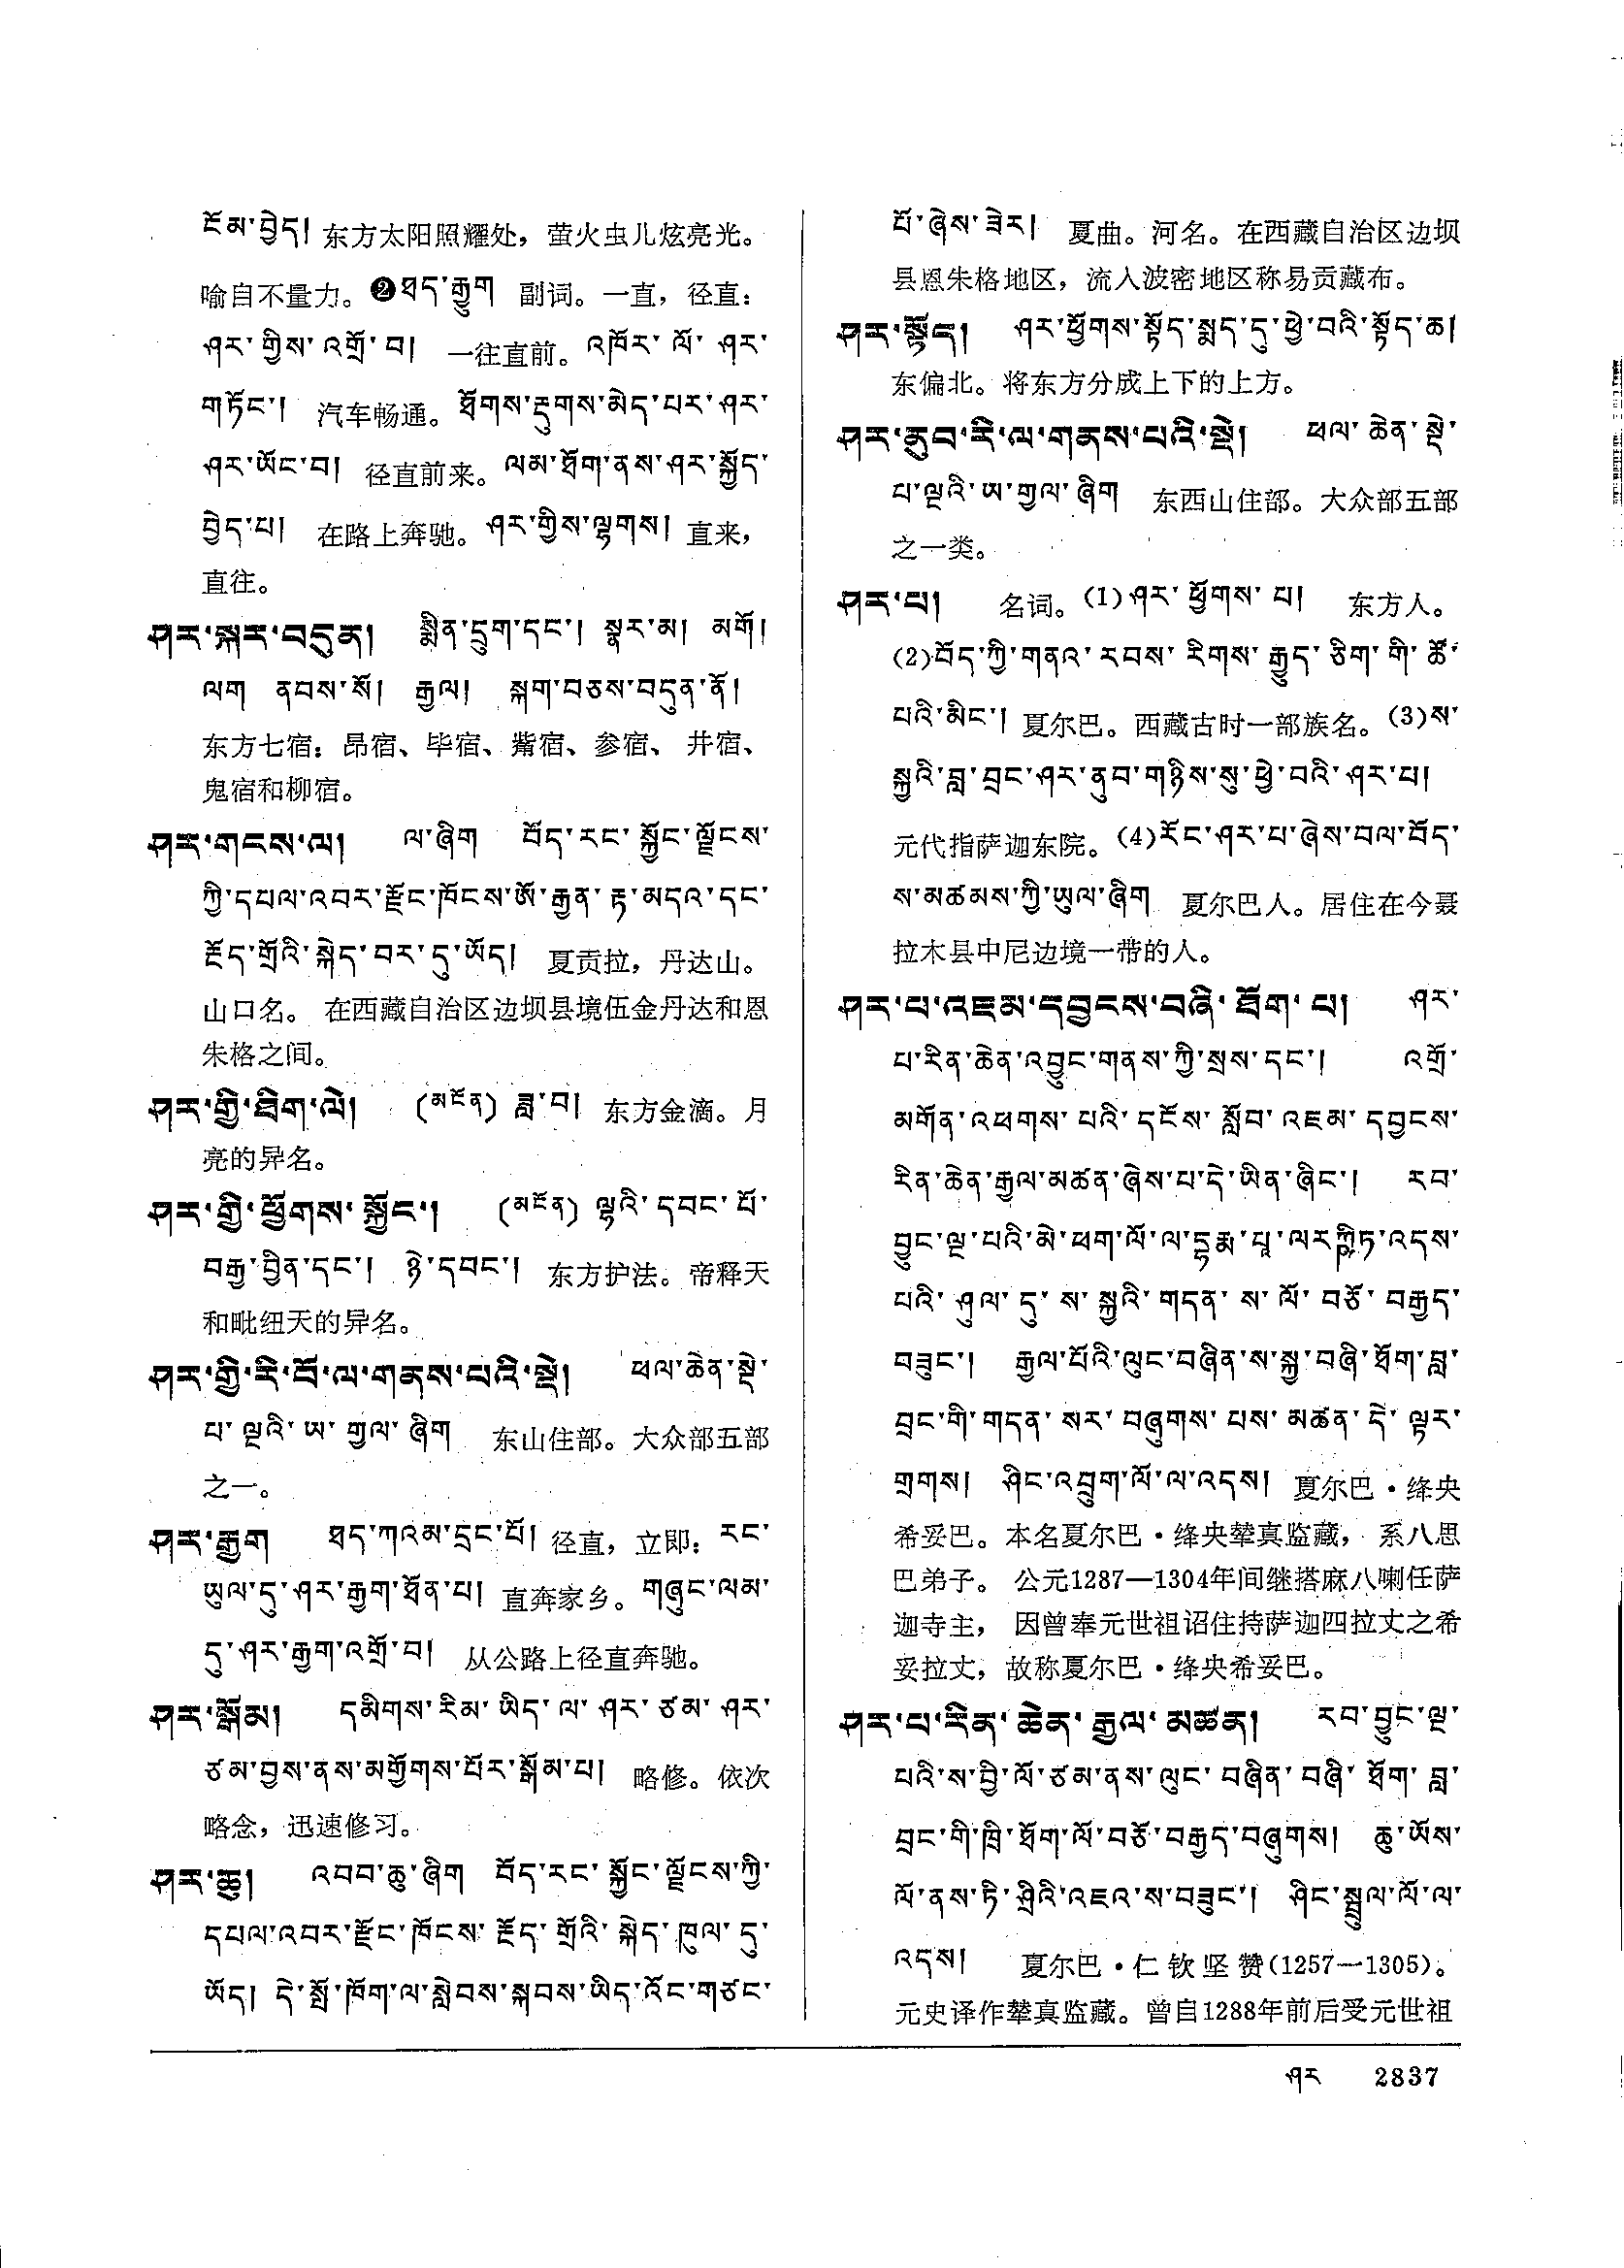 ངོམ་བྱེད། 东方太阳照耀处，萤火虫儿炫亮光。
喻自不量力。❷ཐད་རྒྱུག 副词。一直，径直：
ཤར་གྱིས་འགྲོ་བ། 一往直前。འཁོར་ལོ་ཤར་
གཏོང་། 汽车畅通。ཐོགས་རྡུགས་མེད་པར་ཤར་
ཤར་ཡོང་བ། 径直前来。ལམ་ཐོག་ནས་ཤར་སྐྱོད་
བྱེད་པ། 在路上奔驰。ཤར་གྱིས་ལྷགས། 直来，
直往。
ཤར་སྐར་བདུན། སྨིན་དྲུག་དང་། སྣར་མ། མགོ།
ལག ནབས་སོ། རྒྱལ། སྐག་བཅས་བདུན་ནོ།
东方七宿：昂宿、毕宿、觜宿、参宿、井宿、
鬼宿和柳宿。
ཤར་གངས་ལ། ལ་ཞིག བོད་རང་སྐྱོང་ལྗོངས་
ཀྱི་དཔལ་འབར་རྫོང་ཁོངས་ཨོ་རྒྱན་རྟ་མདའ་དང་
རྫོད་གྲོའི་སྐེད་བར་དུ་ཡོད། 夏贡拉，丹达山。
山口名。 在西藏自治区边坝县境伍金丹达和恩
朱格之间。
ཤར་གྱི་ཐིག་ལེ། (མངོན) ཟླ་བ། 东方金滴。月
亮的异名。
ཤར་གྱི་ཕྱོགས་སྐྱོང་། (མངོན) ལྷའི་དབང་པོ་
བརྒྱ་བྱིན་དང་། ཉེ་དབང་། 东方护法。帝释天
和毗纽天的异名。
ཤར་གྱི་རི་བོ་ལ་གནས་པའི་སྡེ། ཕལ་ཆེན་སྡེ་
པ་ལྔའི་ཨ་གྱལ་ཞིག 东山住部。大众部五部
之一。
ཤར་རྒྱག ཐད་ཀའམ་དྲང་པོ། 径直，立即：རང་
ཡུལ་དུ་ཤར་རྒྱག་ཐོན་པ། 直奔家乡。གཞུང་ལམ་
དུ་ཤར་རྒྱག་འགྲོ་བ། 从公路上径直奔驰。
ཤར་སྒོམ། དམིགས་རིམ་ཡིད་ལ་ཤར་ཙམ་ཤར་
ཙམ་བྱས་ནས་མགྱོགས་པོར་སྒོམ་པ། 略修。依次
略念，迅速修习。
ཤར་ཆུ། འབབ་ཆུ་ཞིག བོད་རང་སྐྱོང་ལྗོངས་ཀྱི་
དཔལ་འབར་རྫོང་ཁོངས་རྫོད་གྲོའི་སྐེད་ཁུལ་དུ་
ཡོད། དེ་སྤོ་ཁོག་ལ་སླེབས་སྐབས་ཡིད་འོང་གཙང་
པོ་ཞེས་ཟེར། 夏曲。河名。在西藏自治区边坝
县恩朱格地区，流入波密地区称易贡藏布。
ཤར་སྟོད། ཤར་ཕྱོགས་སྟོད་སྨད་དུ་ཕྱེ་བའི་སྟོད་ཆ།
东偏北。将东方分成上下的上方。
ཤར་ནུབ་རི་ལ་གནས་པའི་སྡེ། ཕལ་ཆེན་སྡེ་
པ་ལྔའི་ཨ་གྱལ་ཞིག 东西山住部。大众部五部
之一类。
ཤར་པ། 名词。(1)ཤར་ཕྱོགས་པ། 东方人。
(2)བོད་ཀྱི་གནའ་རབས་རིགས་རྒྱུད་ཅིག་གི་ཚོ་
པའི་མིང་། 夏尔巴。西藏古时一部族名。(3)ས་
སྐྱའི་བླ་བྲང་ཤར་ནུབ་གཉིས་སུ་ཕྱེ་བའི་ཤར་པ།
元代指萨迦东院。(4)རོང་ཤར་པ་ཞེས་བལ་བོད་
ས་མཚམས་ཀྱི་ཡུལ་ཞིག 夏尔巴人。居住在今聂
拉木县中尼边境一带的人。
ཤར་པ་འཇམ་དབྱངས་བཞི་ཐོག་པ། ཤར་
པ་རིན་ཆེན་འབྱུང་གནས་ཀྱི་སྲས་དང་། འགྲོ་
མགོན་འཕགས་པའི་དངོས་སློབ་འཇམ་དབྱངས་
རིན་ཆེན་རྒྱལ་མཚན་ཞེས་པ་དེ་ཡིན་ཞིང་། རབ་
བྱུང་ལྔ་པའི་མེ་ཕག་ལོ་ལ་དྷརྨ་པཱ་ལ་རཀྵི་ཏ་འདས་
པའི་ཤུལ་དུ་ས་སྐྱའི་གདན་ས་ལོ་བཅོ་བརྒྱད་
བཟུང་། རྒྱལ་པོའི་ལུང་བཞིན་ས་སྐྱ་བཞི་ཐོག་བླ་
བྲང་གི་གདན་སར་བཞུགས་པས་མཚན་དེ་ལྟར་
གྲགས། ཤིང་འབྲུག་ལོ་ལ་འདས། 夏尔巴·绛央
希妥巴。本名夏尔巴·绛央辇真监藏， 系八思
巴弟子。 公元1287—1304年间继搭麻八喇任萨
迦寺主， 因曾奉元世祖诏住持萨迦四拉丈之希
妥拉丈，故称夏尔巴·绛央希妥巴。
ཤར་པ་རིན་ཆེན་རྒྱལ་མཚན། རབ་བྱུང་ལྔ་
པའི་ས་བྱི་ལོ་ཙམ་ནས་ལུང་བཞིན་བཞི་ཐོག་བླ་
བྲང་གི་ཁྲི་ཐོག་ལོ་བཅོ་བརྒྱད་བཞུགས། ཆུ་ཡོས་
ལོ་ནས་ཏི་ཤྲིའི་འཇའ་ས་བཟུང་། ཤིང་སྦྲུལ་ལོ་ལ་
འདས། 夏尔巴·仁钦坚赞(1257—1305)。
元史译作辇真监藏。曾自1288年前后受元世祖
ཤར 2837